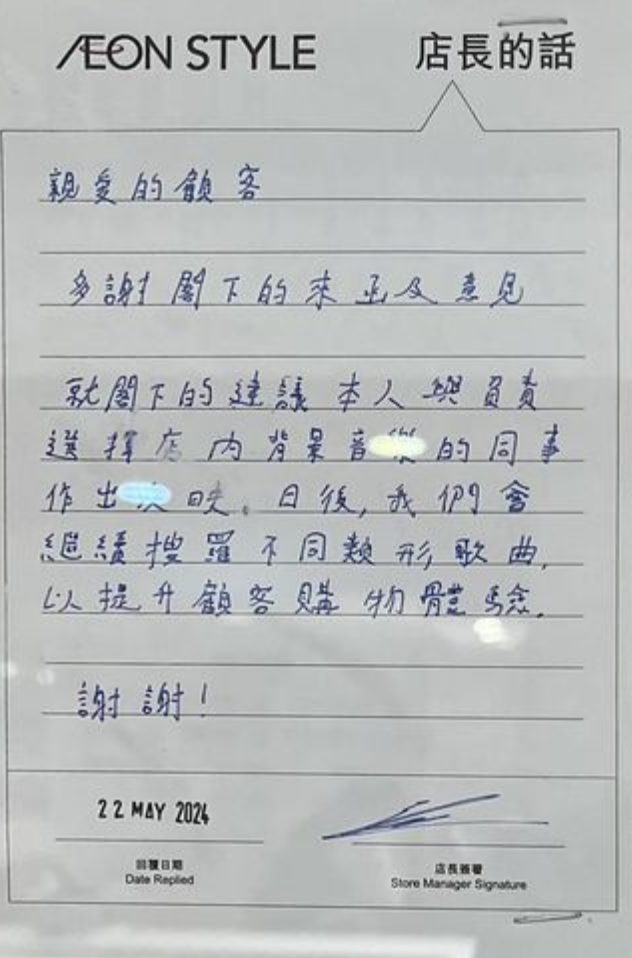 ÆON STYLE 店長的話
親愛的顧客
多謝閣下的來函及意見
就閣下的建議本人與負責
選擇店內背景音樂的同事
作出反映。日後,我們會
繼續搜羅不同類形歌曲,
以提升顧客購物體驗.
謝謝!
22 MAY 2024
回覆日期
Date Replied
店長簽署
Store Manager Signature